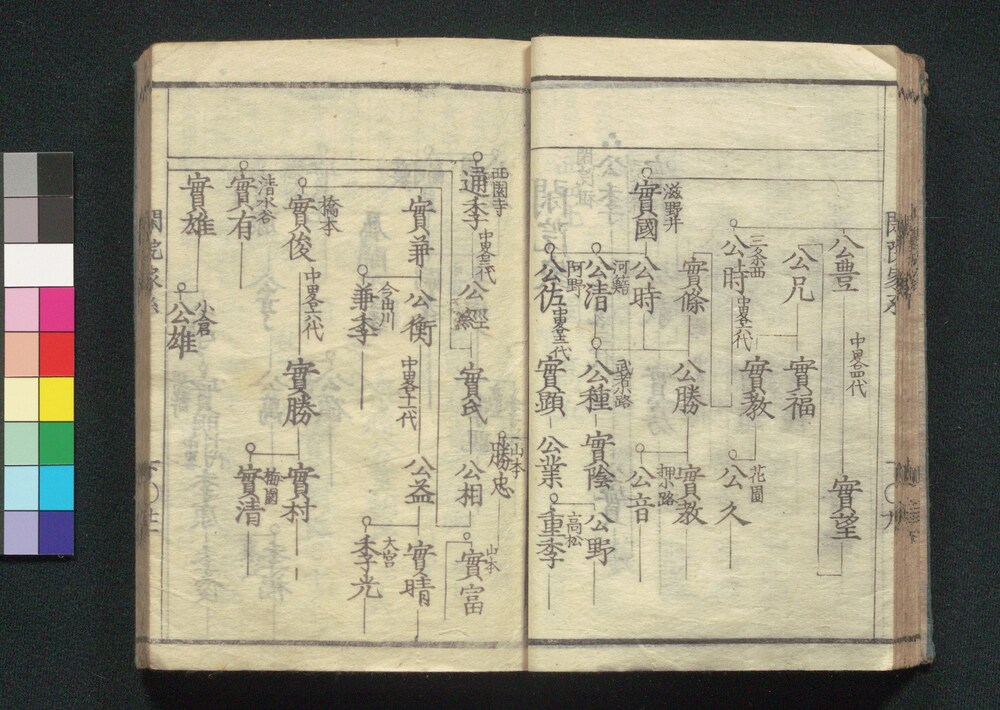 公豊
中畧四代
實望
公兄
實福
三条西
公時
中畧六代
實教
花園
公久
滋野井
實國
實條
公勝
實教
押小路
公音
公時
河鰭
公清
武者小路
公種
實陰
公野
阿野
公佐
中畧十三代
實顕
公業
高松
重季
西園寺
通季
中畧三代
公經
實氏
公相
山本
勝忠
山本
實富
實兼
公衡
中畧十一代
公益
實晴
今出川
兼季
大宮
季光
橋本
實俊
中畧十六代
實勝
實村
梅園
實清
清水谷
實有
實雄
小倉
公雄
閑院家系